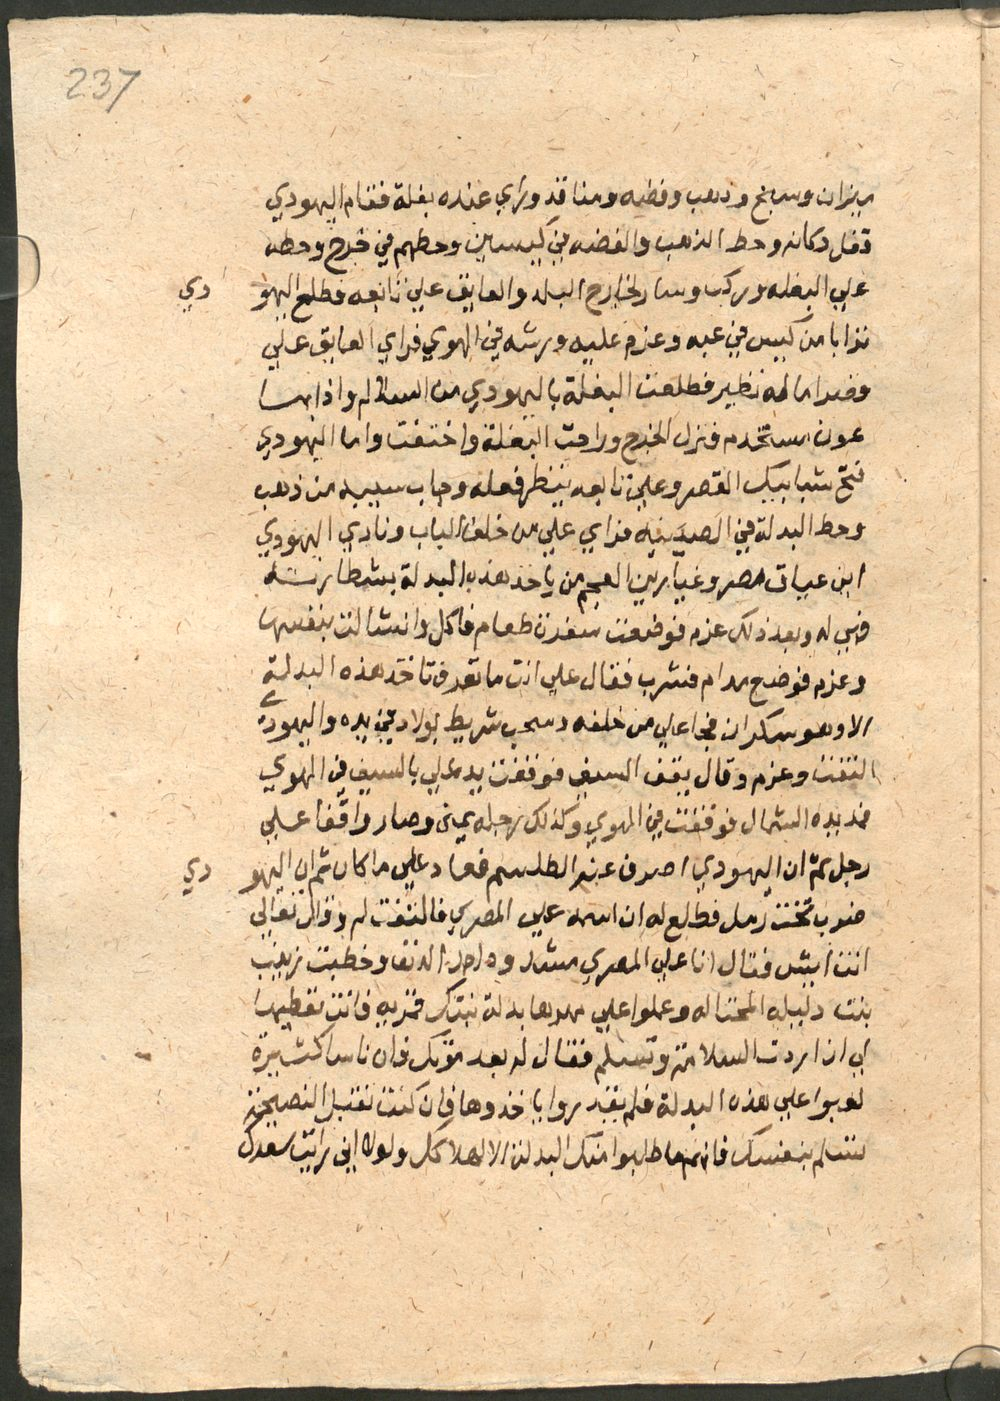 237
ميزان وسنج ودهب وفضه ومناقد وراي عنده بغلة فقام اليهودي
قفل دكانه وحط الذهب والفضه في كيسين وحطهم في خرج وحطه
علي البغله وركب وسار لخارج البلد والعايق علي تابعه فطلع اليهو دي
ترابا من كيس في عبه وعزم عليه ورشه في الهوي فراي العايق علي
قصرا ما له نظير فطلعت البغلة باليهودي من السلالم واذا بها
عون مستخدم فنزل الخرج وراحت البغلة واختفت واما اليهودي
فتح شبابيك القصر وعلي تابعه ينظر فعله وجاب سيبيه من ذهب
وحط البدلة في الصينيه فراي علي من خلف الباب ونادي اليهودي
اين عياق مصر وغيارين العجم من ياخذ هذه البدلة بشطارته
فهي له وبعد ذلك عزم فوضعت سفرة طعام فاكل وانشالت بنفسها
وعزم فوضع مدام فشرب فقال علي انت ما تعرف تاخذ هذه البدلة
الا وهو سكران فجا علي من خلفه وسحب شريط بولاد في يده واليهودي
التفت وعزم وقال يقف السيف فوقفت يد علي بالسيف في الهوي
فمد يده الشمال فوقفت في الهوي وكذلك رجله يمنى وصار واقفا علي
رجل ثم ان اليهودي اصرف عنه الطلسم فعاد علي ما كان ثم ان اليهو دي
ضرب تخت رمل فطلع له ان اسمه علي المصري فالتفت له وقال تعالي
انت ايش فقال انا علي المصري مشدود احمد الدنف وخطبت زينب
بنت دليله المحتاله وعملوا علي مهرها بدلة بنتك قمريه فانت تعطيها
لي ان اردت السلامة وتسلم فقال له بعد موتك فان ناسا كثيرة
لعبوا علي هذه البدلة فلم يقدروا ياخذوها فان كنت تقبل النصيحة
تسلم بنفسك فانهم ما طلبوا منك البدلة الا لهلاكك ولولا اني رايت سعدك